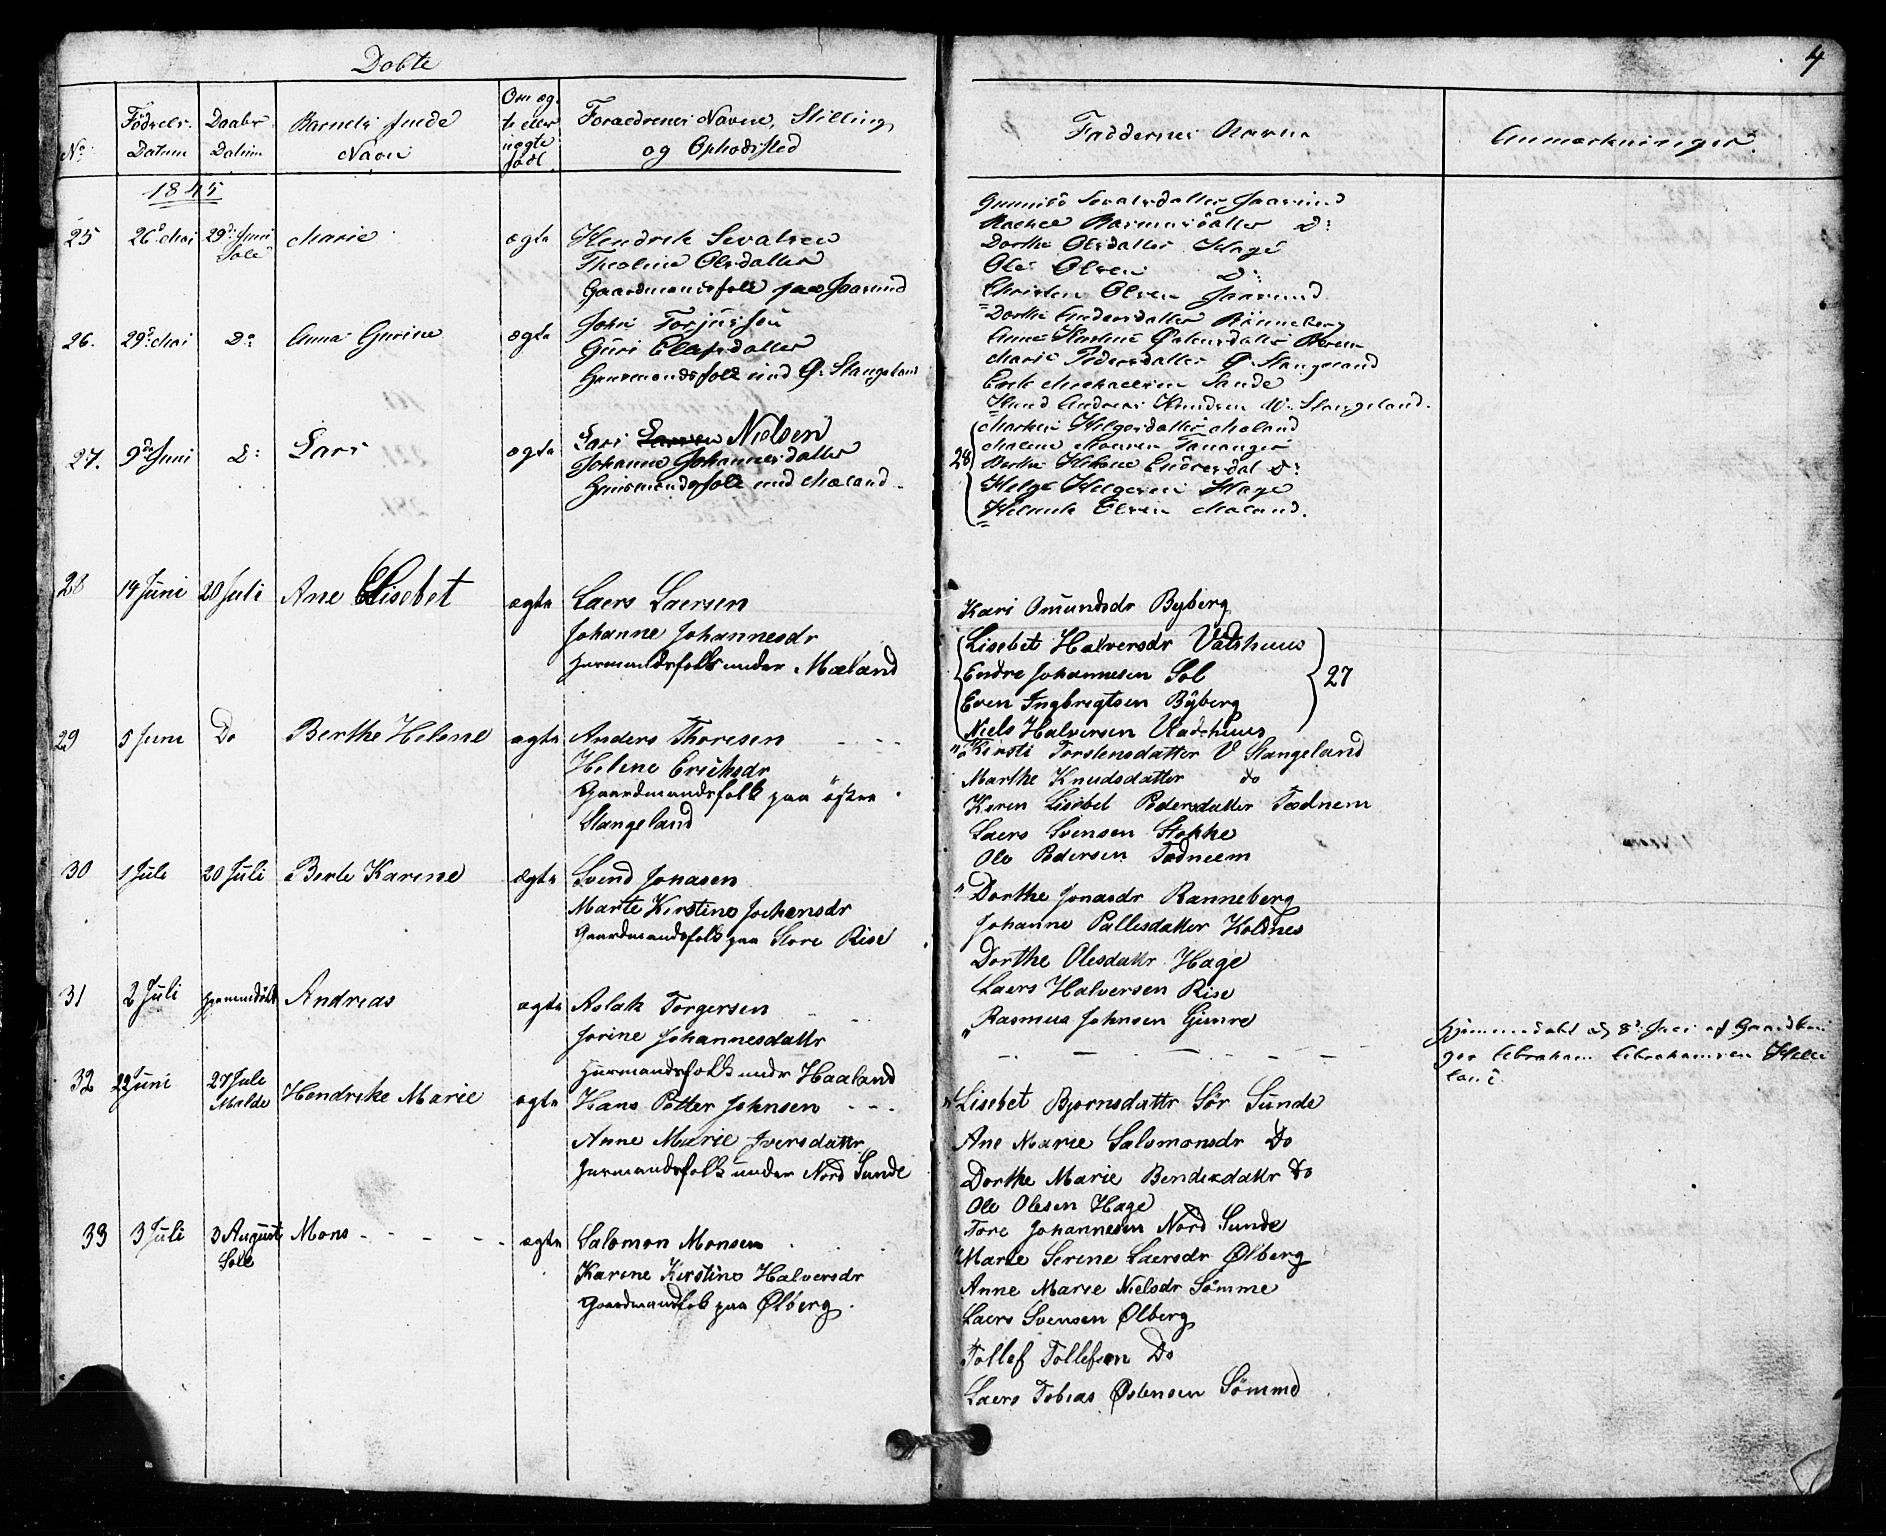 Døbte
4
No
Fødsels Datum
Daabs Datum
Barnets fulde Navn
Om ægte eller uægte født
Forældrenes Navne, Stilling og Opholdsted
Faddernes Navne
Anmærkninger
1845
25 26d Mai 29d Juni Sole Marie ægte Hendrik Sevalsen
Theoline Olsdatter
Gaardmandsfolk paa Jaasund
Gunnild Sevalsdatter Jaasund
Rachel Rasmusdatter Do
Dorthe Olsdatter Hage
Ole Olsen Do
Christen Olsen Jaasund
26. 29d Mai Do Anna Gurine ægte John Torjussen
Guri Elasdatter
Huusmandsfolk und Ø. Stangeland
Dorthe Andersdatter Rönneberg
Anne Kirstine Østensdatter
Marie Pedersdatter Ø. Stangeland
Erik Michaelsen Sande
Knud Andreas Knudsen W. Stangeland.
27. 9de Juni Do Lars ægte Lars Larsen Nielsen
Johanne Johannesdatter
Huusmandsfolk und Mæland
28
Marken Helgesdatter Maland
Malene Monsen Tananger
Berthe Helene Endresdat Do
Helge Helgesen Hage
Helmik Olsen Maland.
28 14 Juni 20 Juli Ane Elisebet ægte Laers Laersen
Johanne Johannesdr
Husmandsfolk under Mæland
Kari Omundsdr Byberg
Lisebet Halversdr Vatshuus
Endre Johannesen Sol
Even Ingbregtsen Byberg
Niels Halversen Vadshuus
27
29 5 Juni Do Berthe Helene ægte Anders Thoresen
Helene Erichsdr
Gaardmandsfolk paa östre
Stangeland
Kirsti Torstensdatter V Stangeland
Marthe Knudsdatter do
Karen Lisebet Pedersdatter Todnem
Laers Svensen Stokke
Ole Pedersen Todneem
30 1 Juli 20 Juli Berte Karine ægte Svend Jonasen
Marte Kirstine Jochensdr
Gaardmandsfolk paa Store Rise
Dorthe Jonasdr Ranneberg
Johanne Pallesdatter Kolnes
Dorthe Olesdattr Hage
Laers Halversen Rise
Rasmus Johnsen Gimre
31 2 Juli hjemmedöbt Andreas ægte Aslak Torgersen
Jorine Johannesdattr
Husmandsfolk undr Haaland
Hjemmedøbt d. 8d Juli af Gaardbru
ger Abraham Abrahamsen Helle
land.
32 22 Juni 27 Juli Malde Hendrike Marie ægte Hans Petter Johnsen
Anne Marie Iversdattr
Husmandsfolk under Nord Sunde
Lisebet Bjornsdattr Sör Sunde
Ane Marie Salomonsdr Do
Dorthe Marie Bendixdattr Do
Ole Olesen Hage
Tore Johannesen Nord Sunde
33 3 Juli 3 August Sole Mons ægte Salomon Monsen
Karine Kirstine Halversdr
Gaardmandfolk paa Ølberg.
Marte Serine Laersdr Ølberg
Anne Marie Nielsdr Sömme
Laers Svensen Ølberg
Tollef Tollefsen Do
Laers Tobias Østensen Sömme